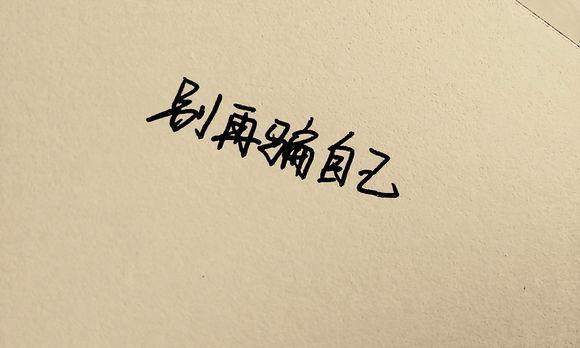 别再骗自己